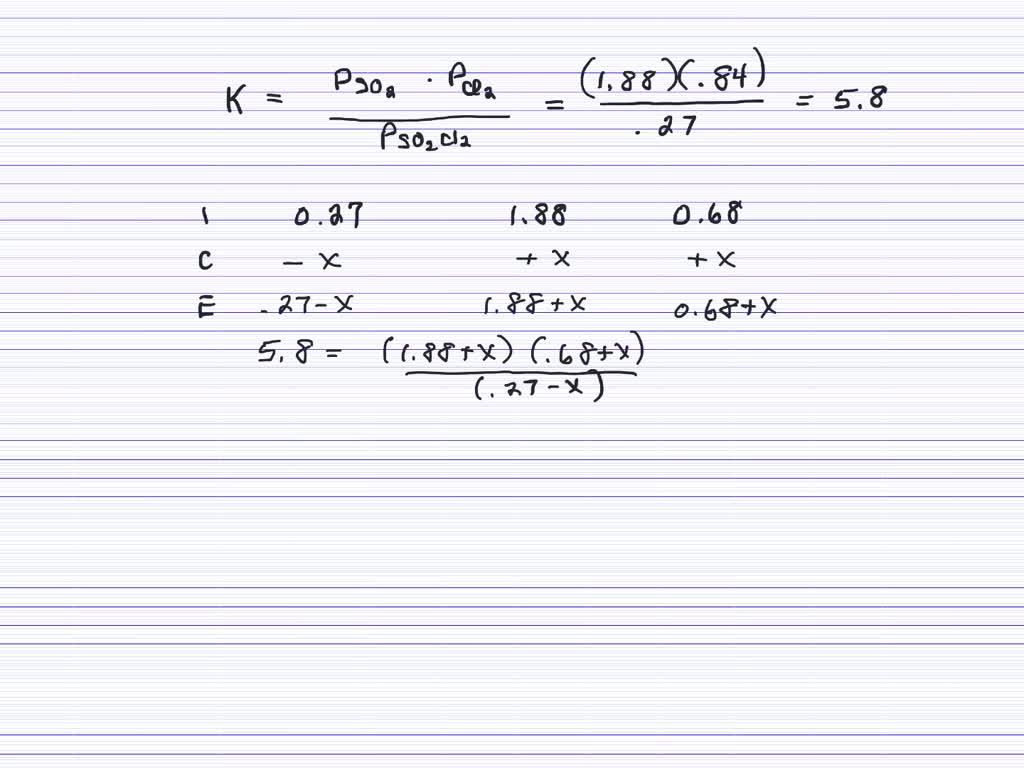 K = P_SO₂ · P_Cl₂ / P_SO₂Cl₂ = (1.88)(.84) / .27 = 5.8
I 0.27 1.88 0.68
C - x + x + x
E .27-x 1.88+x 0.68+x
5.8 = (1.88+x) (.68+x) / (.27-x)